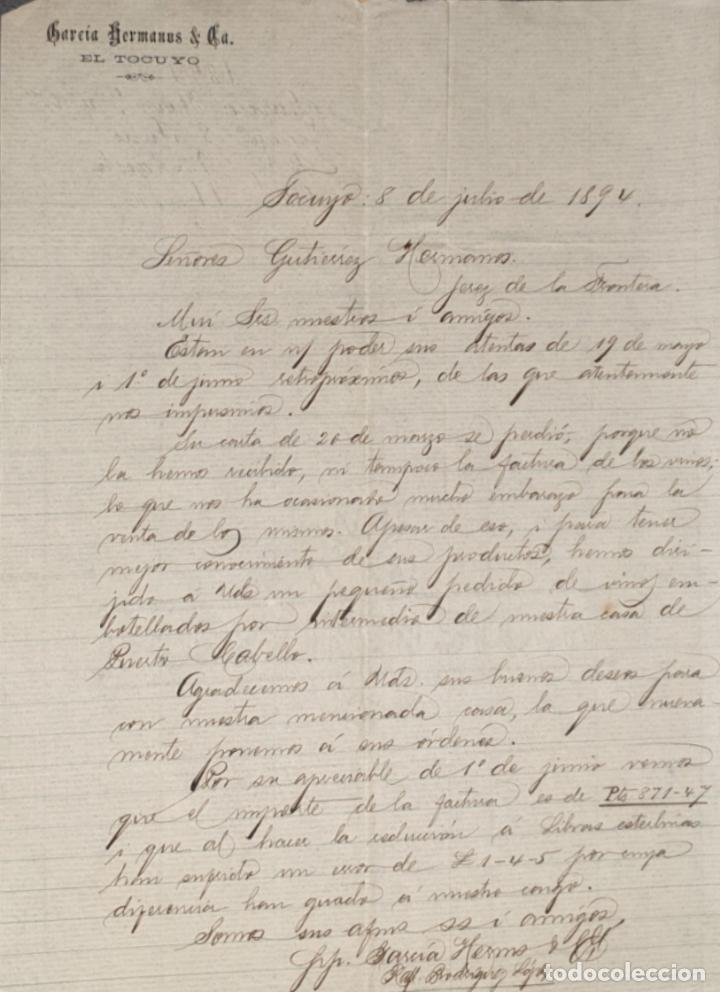 García Hermanos & Ca.
EL TOCUYO
Tocuyo: 8 de julio de 1894.
Señores Gutierrez Hermanos.
Jerez de la Frontera.
Mui Srs. nuestros i amigos.
Estan en n/ poder sus atentas de 19 de mayo
i 1º de junio retropróximos, de las que atentamente
nos impusimos.
Su carta de 20 de marzo se perdió, porque no
la hemos recibido, ni tampoco la factura de los vinos;
lo que nos ha ocasionado mucho embarazo para la
venta de los mismos. Apesar de eso, i para tener
mejor conocimiento de sus productos, hemos diri-
jido á Uds un pequeño pedido de vinos em-
botellados por intermedio de nuestra casa de
Puerto Cabello.
Agradecemos á Uds. sus buenos deseos para
con nuestra mencionada casa, la que nueva-
mente ponemos á sus órdenes.
Por su apreciable de 1º de junio vemos
que el importe de la factura es de Pts 871-47
i que al hacer la reducción á Libras esterlinas
han sufrido un error de £ 1-4-5 por cuya
diferencia han girado á nuestro cargo.
Somos sus afmos ss i amigos,
pp. García Hermos & Ca
Raf. Rodriguez López
todocoleccion